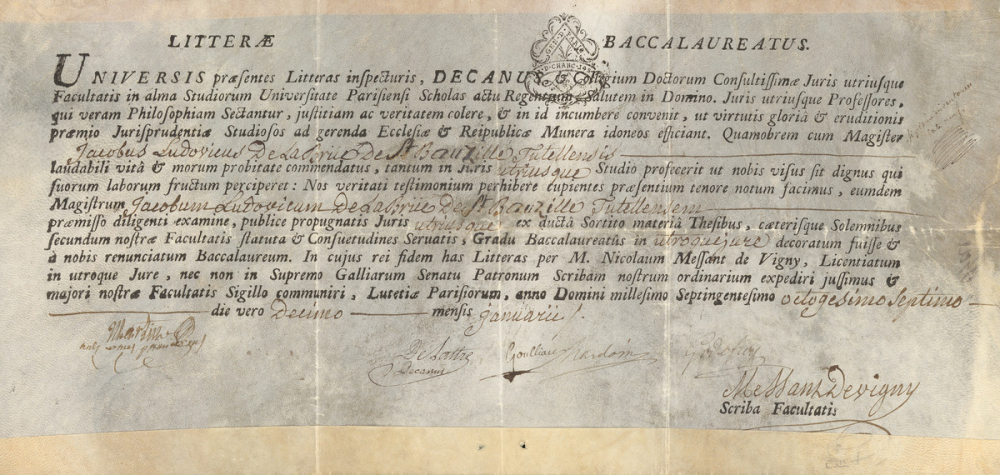 LITTERÆ BACCALAUREATUS.
UNIVERSIS præsentes Litteras inspecturis, DECANUS & Collegium Doctorum Consultissimæ Juris utriusque
Facultatis in alma Studiorum Universitate Parisiensi Scholas actu Regentium Salutem in Domino. Juris utriusque Professores,
qui veram Philosophiam Sectantur, justitiam ac veritatem colere, & in id incumbere convenit, ut virtutis gloriâ & eruditionis
præmio Jurisprudentiæ Studiosos ad gerenda Ecclesiæ & Reipublicæ Munera idoneos efficiant. Quamobrem cum Magister
Jacobus Ludovicus De La Brüe De St. Bauzille Tutellensis
laudabili vitâ & morum probitate commendatus, tantum in Juris utriusque Studio profecerit ut nobis visus sit dignus qui
suorum laborum fructum perciperet: Nos veritati testimonium perhibere cupientes præsentium tenore notum facimus, eumdem
Magistrum Jacobum Ludovicum De La Brüe De St. Bauzille Tutellensem
præmisso diligenti examine, publice propugnatis Juris utriusque ex ductâ Sortito materiâ Thesibus, cæterisque Solemnibus
secundum nostræ Facultatis statuta & Consuetudines Servatis, Gradu Baccalaureatûs in utroque jure decoratum fuisse &
à nobis renunciatum Baccalaureum. In cujus rei fidem has Litteras per M. Nicolaum Messant de Vigny, Licentiatum
in utroque Jure, nec non in Supremo Galliarum Senatu Patronum Scribam nostrum ordinarium expediri jussimus &
majori nostræ Facultatis Sigillo communiri, Lutetiæ Parisiorum, anno Domini millesimo Septingentesimo octogesimo Septimo
die vero Decimo mensis januarii.
Martin
De Lattre
Decanus
Messant Devigny
Scriba Facultatis